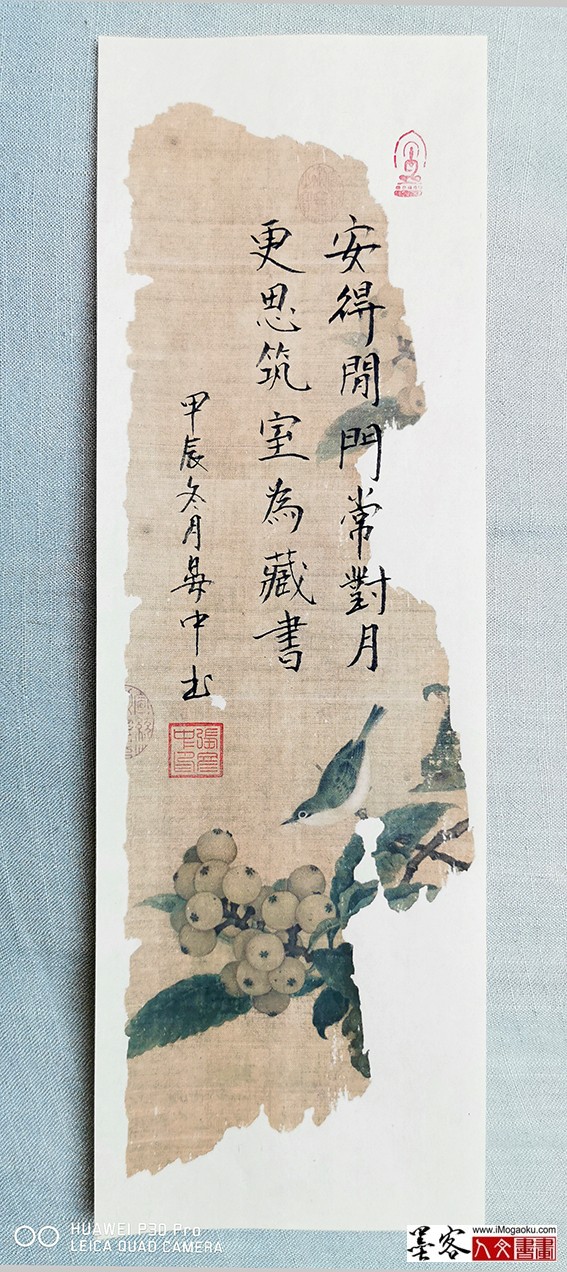 安得閒門常對月
更思筑室為藏書
甲辰冬月
中
HUAWEI P30 Pro
LEICA QUAD CAMERA
墨客
www.iMogaoku.com
人文書畫